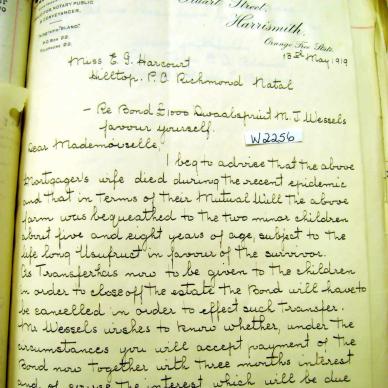 NOTARY PUBLIC
& CONVEYANCER.
P.O. BOX 22.
TELEPHONE 22.
Stuart Street,
Harrismith.
Orange Free State.
13th May, 1919
Miss E. G. Harcourt
Hilltop. P.O. Richmond Natal
- Re Bond £1000 Dwaalspruit M. J. Wessels
favour yourself.
W2256
Dear Mademoiselle,
I beg to advise that the above
Mortgager's wife died during the recent epidemic
and that in terms of their Mutual Will the above
farm was bequeathed to the two minor children
about five and eight years of age, subject to the
life long Usufruct in favour of the survivor.
As Transfer has now to be given to the children
in order to close off the estate the Bond will have to
be cancelled in order to effect such transfer.
Mr Wessels wishes to know whether, under the
circumstances you will accept payment of the
Bond now together with three months interest
and of course the interest which will be due